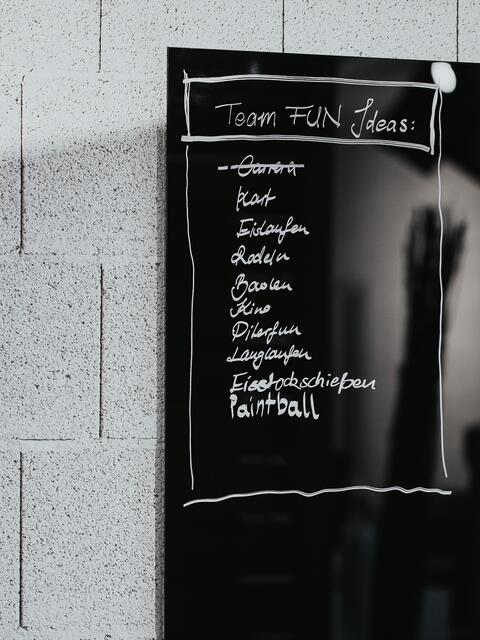 Team FUN Ideas:
- Carrera
Kart
Eislaufen
Rodeln
Kino
Langlaufen
Eisstockschießen
Paintball